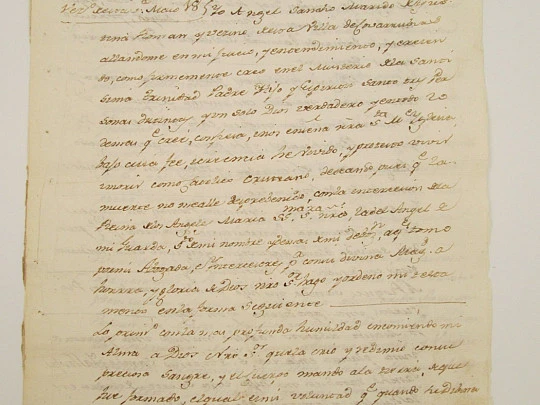 Yo Angel Sancho Marido de
Roman y vecino de esta Villa de Covarrubias
allandome en mi juicio, y entendimiento, y creien
do, como firmemente creo en el Misterio de la Santi
sima Trinidad Padre Hijo y Espiritu Santo tres Per
sonas distintas, y un solo Dios verdadero y en todo lo
demas q.e cree, confiesa, y nos enseña nra S.ta M.e Yglesia,
bajo cuia fee, y creencia he vivido, y protesto vivir
y morir como Catolico Cristiano, deseando, pues q.e la
muerte no me alle desprebenido, con la intercesion de la
Reina de los Angeles Maria SS. S.ra nra la del Angel de
mi Guarda, S.to de mi nombre y demas de mi deboz.n, a q.s tomo
por mi Abogada, e Yntercesores, p.a con su divina Mag.d a
honrra, y gloria de Dios nro S.r hago y ordeno mi testa
mento en la forma siguiente
Lo prim.o con la mas profunda humildad encomiendo mi
Alma a Dios Nro S.r que la crio y redimio con su
preciosa Sangre, y el cuerpo mando a la tierra, de que
fue formado, el qual es mi voluntad q.e quando